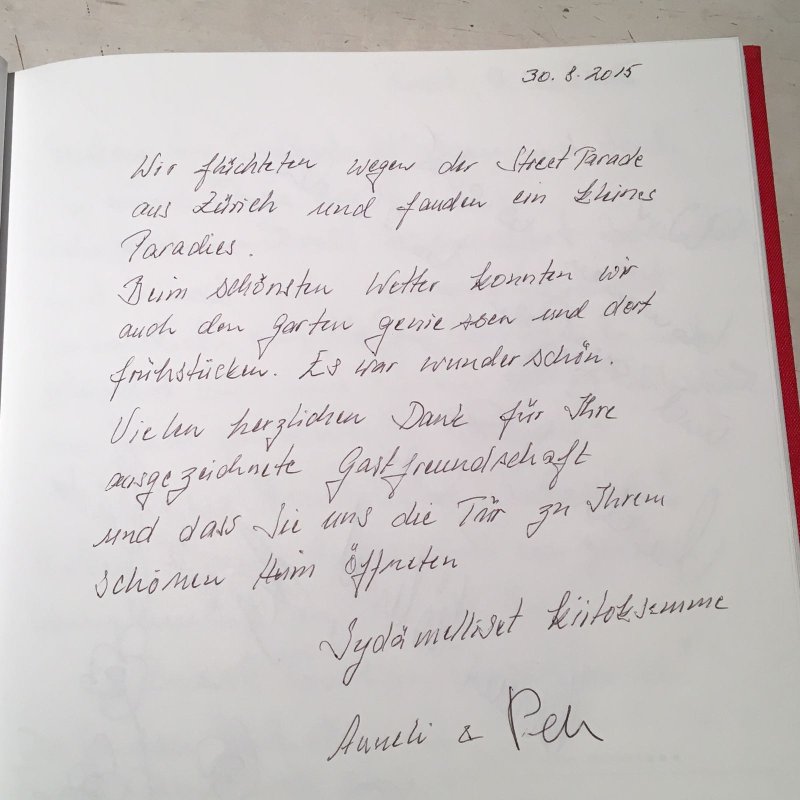 30.8.2015
Wir flüchteten wegen der Street Parade
aus Zürich und fanden ein kleines
Paradies.
Beim schönsten Wetter konnten wir
auch den Garten geniessen und dort
frühstücken. Es war wunderschön.
Vielen herzlichen Dank für Ihre
ausgezeichnete Gastfreundschaft
und dass Sie uns die Tür zu Ihrem
schönen Heim öffneten
Sydämelliset kiitoksemme
Anneli &